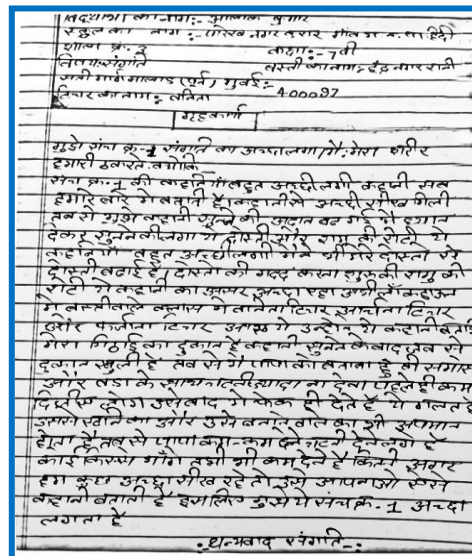 विद्यार्थी का नाम:- आलोक कुमार
स्कूल का नाम:- नगर म.न.पा. हिंदी
शाला क्र. 2 कक्षा:- 7वी
विषय:संगति बस्ती का नाम:- इंद्रा नगर रानी
सती मार्ग मालाड (पूर्व), मुंबई:-
टिचर का नाम:- वनिता 400097
गृहकार्य
मुझे संच क्र-1 संगति का अच्छा लगा/मै:मेरा शरीर
हमारी क्योंकि
संच क्र.1 की कहानियाँ बहुत अच्छी लगी कहानी सब
हमारे बारे मे बताती है। कहानी से अच्छी सीख मिली
तब से मुझे कहानी सुनने की आदत बढ़ गई मै ध्यान
देकर सुनने लगा ये दोस्ती और रामु की रोटी ये
कहानियाँ बहुत अच्छी लगी मैने भी मेरे दोस्तो से
दोस्ती बढाई है दोस्तो की मदद करना शुरू की रामु की
रोटी ये कहानी का असर अच्छा रहा अभी
मे बस्तीवाले क्लास मे वनिता टिचर अर्चना टिचर
और टिचर उन्होंने ये कहानी बताई
मेरा मिठाई का दुकान है कहानी सुनने के बाद जब से
दुकान खुली है तब से मै पापा को बताता हूँ की समोसा
और वडा के साथ चटनी ज्यादा ना देना पहले ही कम
दिजीए लोग उसे बाद मे फेक ही देते है ये गलत है
उससे खाने का और उसे बनाने वाले का भी अपमान
होता है तब से पापा कम-कम देने चटनी देने लगे है
कोई किससे माँगे तभी भी कम देते है कितने अगर
हम कुछ अच्छा सीख रहे तो उसे अपनाओ ऐसे
कहानी बताती है इसलिए मुझे ये संच क्र.-1 अच्छा
लगता है
:धन्यवाद संगति-: